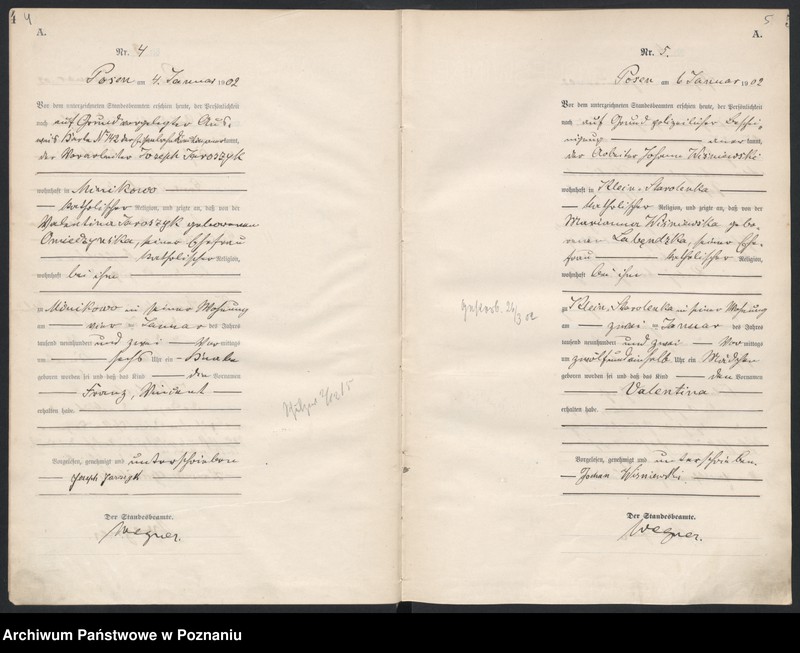 4
A.
Nr. 4
Posen am 4. Januar 1902
Vor dem unterzeichneten Standesbeamten erschien heute, der Persönlichkeit
nach auf Grund vorgelegter Aus-
der Vorarbeiter Joseph
wohnhaft in Minikowo
katholischer Religion, und zeigte an, daß von der
Valentina geborenen
seiner Ehefrau
katholischer Religion,
wohnhaft bei ihm
in Minikowo in seiner Wohnung
am vier - Januar des Jahres
tausend neunhundert und zwei Vor mittags
um sechs Uhr ein Knabe
geboren worden sei und daß das Kind den Vornamen
Franz, Vincent
erhalten habe.
Vorgelesen, genehmigt und unterschrieben
Joseph
Der Standesbeamte.
Wegner.
5.
A.
Nr. 5.
Posen am 6 Januar 1902
Vor dem unterzeichneten Standesbeamten erschien heute, der Persönlichkeit
nach auf Grund polizeilicher Beschei-
nigung anerkannt,
der Arbeiter Johann Wiśniewski
wohnhaft in Klein-Starolenka
katholischer Religion, und zeigte an, daß von der
Marianna Wiśniewska gebo-
renen seiner Ehe-
frau katholischer Religion,
wohnhaft bei ihm
in Klein-Starolenka in seiner Wohnung
am zwei - Januar des Jahres
tausend neunhundert und zwei Vor mittags
um zwölfundeinhalb Uhr ein Mädchen
geboren worden sei und daß das Kind den Vornamen
Valentina
erhalten habe.
Vorgelesen, genehmigt und unterschrieben.
Johan Wiśniewski
Der Standesbeamte.
Wegner.
Archiwum Państwowe w Poznaniu